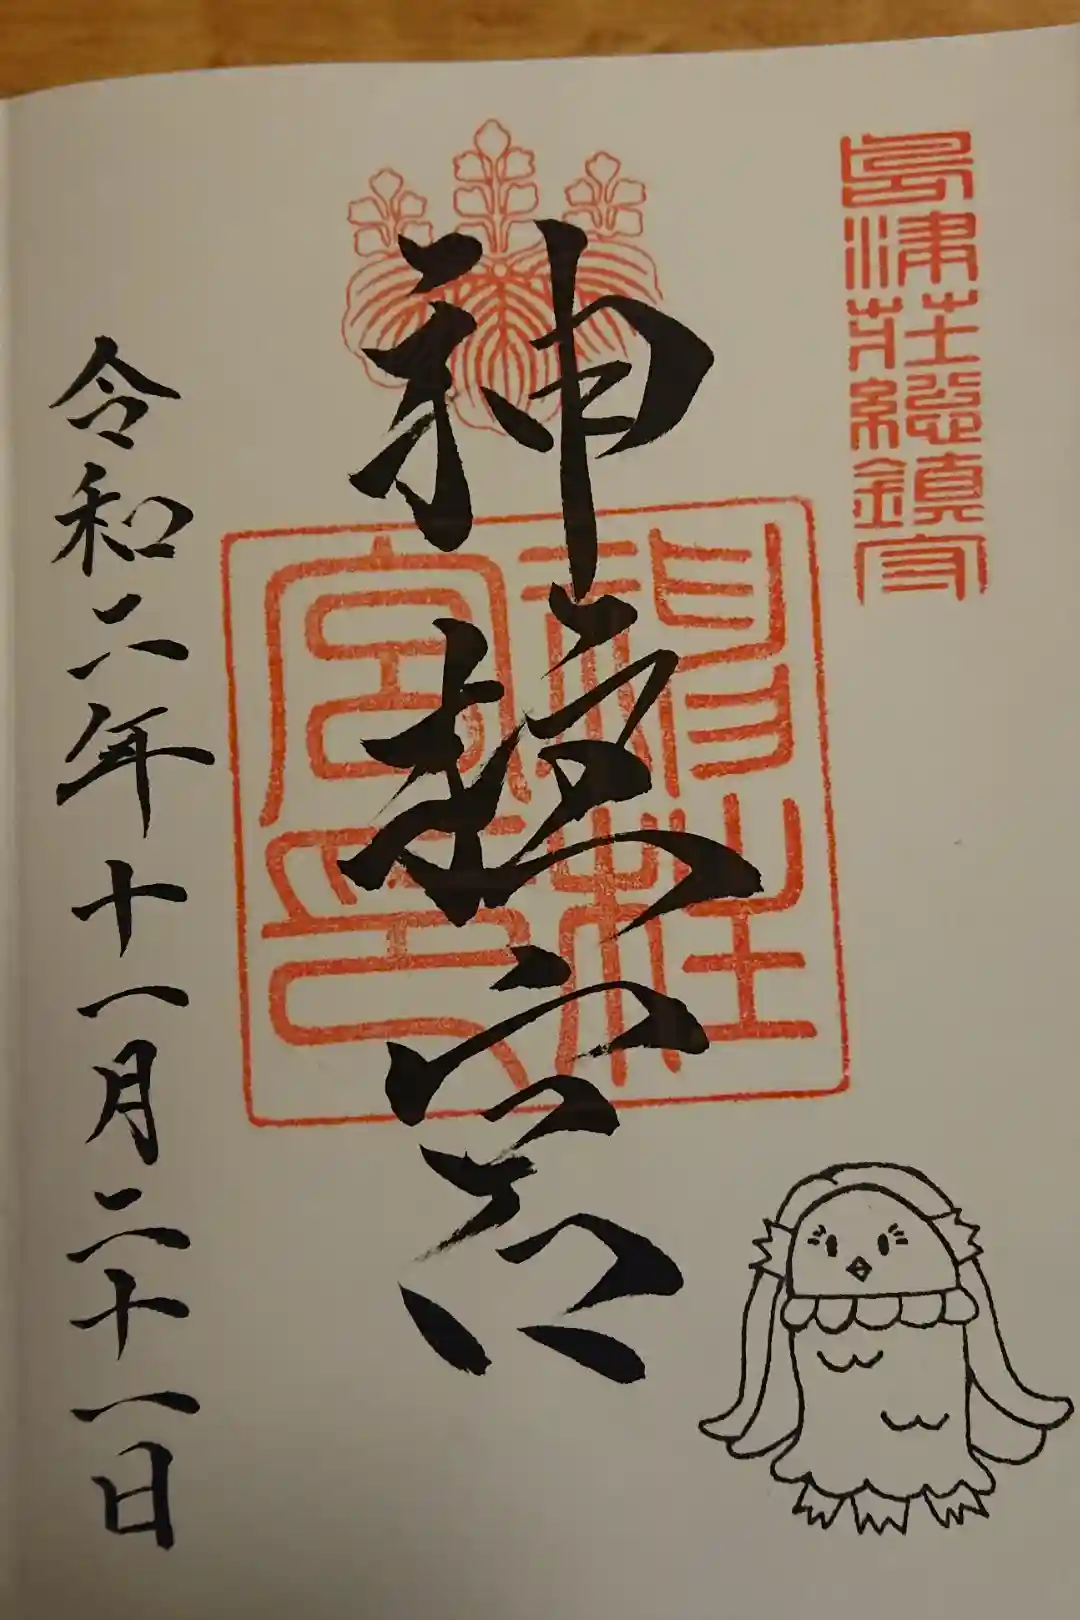 島津莊總鎮守
神柱宮
神柱宮印
令和二年十一月二十一日